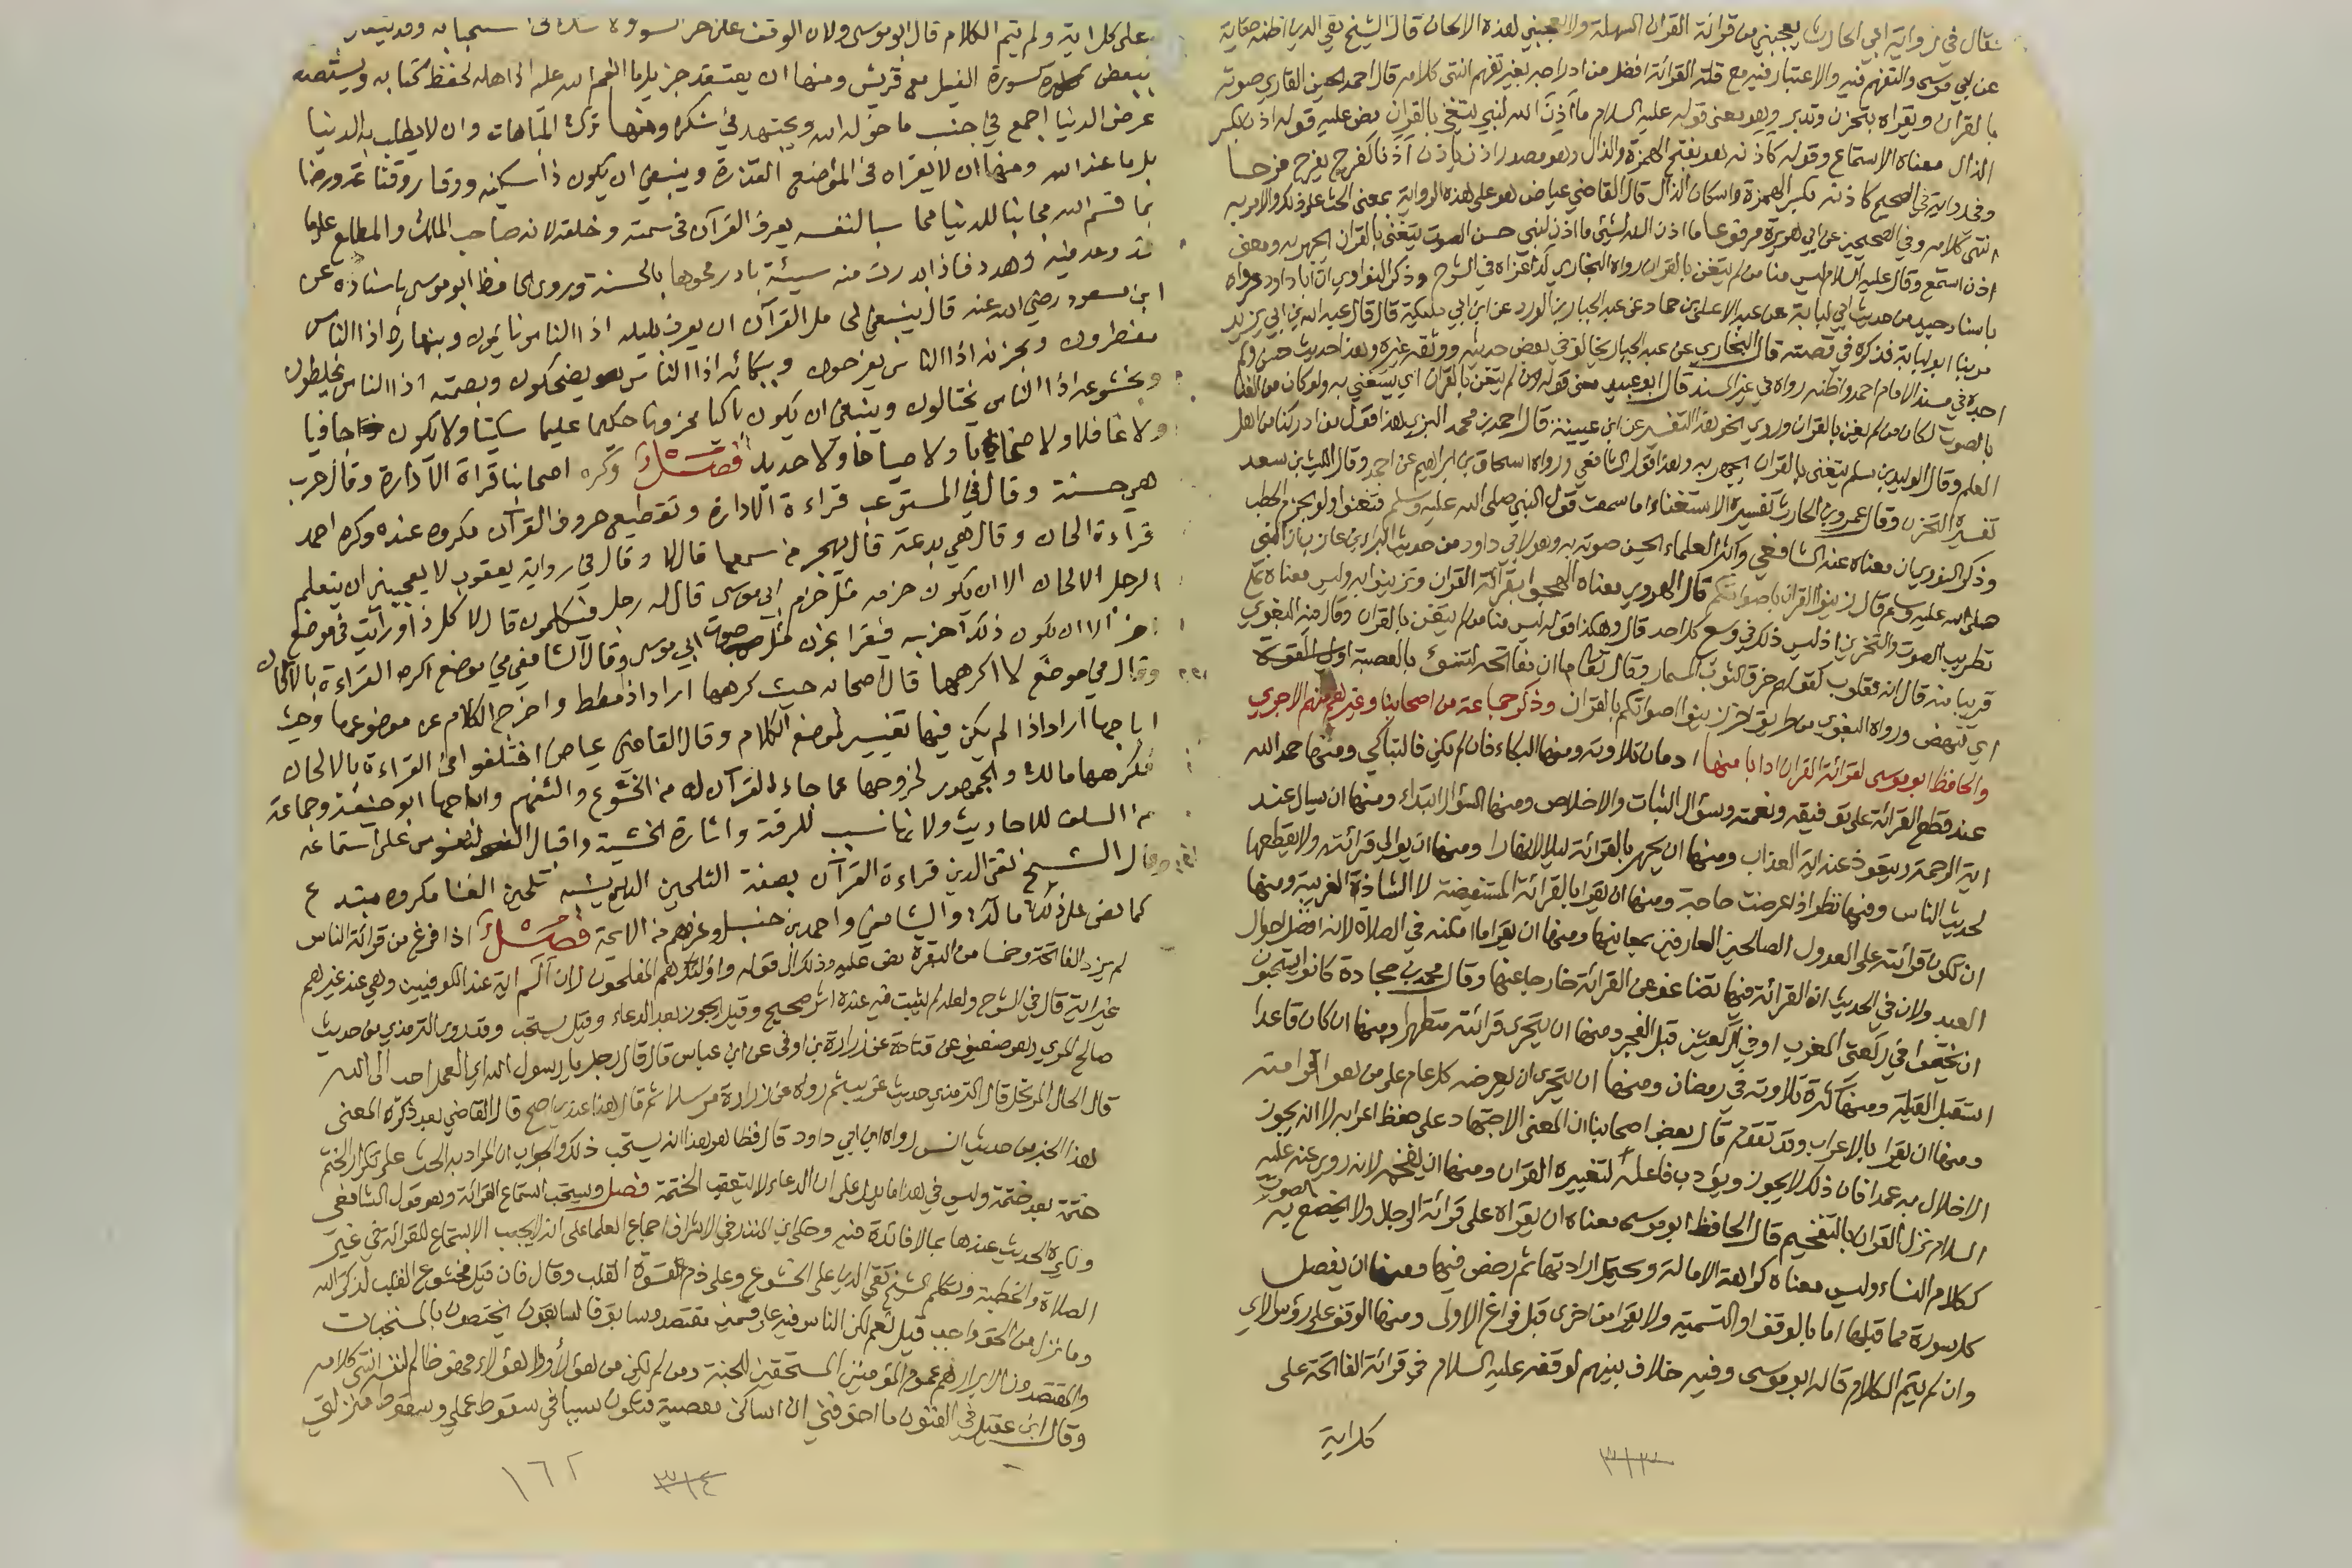 فقال في رواية ابي الحارث يعجبني من قرائة القران السهلة ولا تعجبني هذه الالحان قال الشيخ تقي الدين اظنه حكاية
عن ابي موسى والتفهم فيه والاعتبار فيه مع قلة القرائة افضل من ادراجه بغير تفهم انتهى كلامه قال احمد يحسن القاري صوته
بالقران ويقراه بتحزن وتدبر وهو معنى قوله عليه السلام ما أذِنَ الله لنبي يتغنى بالقران نص عليه قوله اذن بكسر
الذال معناه الاستماع وقوله كاذنه هو بفتح الهمزة والذال وهو مصدر اذن ياذن أذَنا كفرح يفرح فرحا
وفي رواية في الصحيح كاذنه بكسر الهمزة واسكان الذال قال القاضي عياض هو على هذه الرواية بمعنى الحث على ذلك والامر به
انتهى كلامه وفي الصحيحين عن ابي هريرة مرفوعا ما اذن الله لشيئ ما اذن لنبي حسن الصوت يتغنى بالقران يجهر به ومعنى
اذن استمع وقال عليه السلام ليس منا من لم يتغن بالقران رواه البخاري كذا عزاه في الشرح وذكر النواوي ان ابا داود رواه
باسناد جيد من حديث ابي لبابة عن عبد الاعلى بن حماد عن عبد الجبار بن الورد عن ابن ابي مليكة قال قال عبد الله بن ابي يزيد
مر بنا ابو لبابة فذكره في قصته قال البخاري عن عبد الجبار يخالف في بعض حديثه ووثقه غيره وهذا حديث حسن ولم
اجده في مسند الامام احمد واظنه رواه في غير المسند قال ابو عبيد معنى قوله من لم يتغن بالقران اي يستغني به ولو كان من الغنا
بالصوت لكان من لم يغن بالقران وروي نحو هذا التفسير عن ابن عيينة قال احمد بن محمد البزي هذا قول من ادركنا من اهل
العلم وقال الوليد بن مسلم يتغنى بالقران يجهر به وهذا قول الشافعي ورواه اسحاق بن ابراهيم عن احمد وقال الليث بن سعد
تفسيره التحزن وقال عمرو بن الحارث تفسيره الاستغناء اما سمعت قول النبي صلى الله عليه وسلم فتغنوا ولو بحزم الحطب
وذكر النووي ان معناه عند الشافعي واكثر العلماء تحسين صوته به وهو لابي داود من حديث البراء بن عازب ان النبي
صلى الله عليه وسلم قال زينوا القران باصواتكم قال الهروي معناه الهجوا بقرائة القران وتزينوا به وليس معناه على
تطريب الصوت والتحزين اذ ليس ذلك في وسع كل احد قال وهكذا قوله ليس منا من لم يتغن بالقران وقال فيه البغوي
قريبا منه قال انه مقلوب كقولهم خرق الثوب المسمار وقال تعالى ما ان مفاتحه لتنوء بالعصبة اولى القوة
اي تنهض ورواه البغوي من طريق اخر زينوا اصواتكم بالقران وذكر جماعة من اصحابنا وغيرهم منهم الاجري
والحافظ ابو موسى لقرائة القران ادابا منها ادمان تلاوته ومنها البكاء فان لم يكن فالتباكي ومنها حمد الله
عند قطع القرائة على توفيقه ونعمته وسؤال الثبات والاخلاص ومنها السؤال ابتداء ومنها ان يسال عند
اية الرحمة ويتعوذ عند اية العذاب ومنها ان يجهر بالقرائة ليلا لا نهارا ومنها ان يوالي قرائته ولا يقطعها
لحديث الناس وفيه نظر اذا عرضت حاجة ومنها ان يقرا بالقرائة المستفيضة لا الشاذة الغريبة ومنها
ان تكون قرائته على العدول الصالحين العارفين بمعانيها ومنها ان يقرا ما امكنه في الصلاة لانه افضل احوال
العبد ولان في الحديث ان القرائة فيها تضاعف عن القرائة خارجا عنها وقال محمد بن جحادة كانوا يستحبون
ان يختموا في ركعتي المغرب او في الركعتين قبل الفجر ومنها ان يتحرى قرائته متطهرا ومنها ان كان قاعدا
استقبل القبلة ومنها كثرة تلاوته في رمضان ومنها ان يتحرى ان يعرضه كل عام على من هو اقرا منه
ومنها ان يقرا بالاعراب وقد تقدم قال بعض اصحابنا ان المعنى الاجتهاد على حفظ اعرابه لا انه يجوز
الاخلال به عمدا فان ذلك لا يجوز ويؤدب فاعله لتغييره القران ومنها ان يفخمه لانه روي عنه عليه
السلام نزل القران بالتفخيم قال الحافظ ابو موسى معناه ان يقراه على قرائة الرجال ولا يخضع الصوت به
ككلام النساء وليس معناه كراهة الامالة ويحتمل ارادتها ثم رخص فيها ومنها ان يفصل
كل سورة مما قبلها اما بالوقف او التسمية ولا يقرا من اخرى قبل فراغ الاولى ومنها الوقف على رؤس الاي
وان لم يتم الكلام قاله ابو موسى وفيه خلاف بينهم لوقفه عليه السلام في قرائة الفاتحة على
كل اية
٣١٣
على كل اية ولم يتم الكلام قال ابو موسى ولان الوقف على اخر السور لا شك في استحبابه وقد يتعلق
بعض كسورة الفيل مع قريش ومنها ان يعتقد جزيل ما انعم الله عليه اذ اهله لحفظ كتابه ويستصغر
عرض الدنيا اجمع في جنب ما خوله الله ويجتهد في شكره ومنها ترك المباهات وان لا يطلب به الدنيا
بل ما عند الله ومنها ان لا يقراه في المواضع القذرة وينبغي ان يكون ذا سكينة ووقار وقناعة ورضا
بما قسم الله مجانبا للدنيا محاسبا لنفسه يعرف القرآن في سمته وخلقه لانه صاحب الملك والمطلع على ما
قد وعد فيه وهدد فاذا بدرت منه سيئة بادر محوها بالحسنة وروى الحافظ ابو موسى باسناده عن
ابن مسعود رضي الله عنه قال ينبغي لحامل القرآن ان يعرف بليله اذا الناس نائمون وبنهاره اذا الناس
مفطرون وبحزنه اذا الناس يفرحون وببكائه اذا الناس يضحكون وبصمته اذا الناس يخلطون
وبخشوعه اذا الناس يختالون وينبغي ان يكون باكيا محزونا حكيما عليما سكيتا ولا يكون جافيا
ولا غافلا ولا صخابا ولا صياحا ولا حديدا فصل وكره اصحابنا قراة الادارة وقال حرب
هي حسنة وقال في المستوعب قراءة الادارة وتقطيع حروف القرآن مكروه عنده وكره احمد
قراءة الحان وقال هي بدعة قال يهجر من سمعها قال لا وقال في رواية يعقوب لا يعجبني ان يتعلم
الرجل الالحان الا ان يكون حزنه مثل حزن ابي موسى قال له رجل فيكلمون قال لا كل ذا ورأيت في موضع
اخر الا ان يكون ذلك حزنه فيقرا بحزن مثل صوت ابي موسى وقال الشافعي في موضع اكره القراءة بالالحان
وقال في موضع لا اكرهها قال اصحابه حيث كرهها اراد اذا مطط واخرج الكلام عن موضوعه وحيث
اباحها اراد اذا لم يكن فيها تغيير لموضع الكلام وقال القاضي عياض اختلفوا في القراءة بالالحان
فكرهها مالك والجمهور لخروجها عما جاء القرآن له من الخشوع والتفهم واباحها ابو حنيفة وجماعة
من السلف للاحاديث ولانها سبب للرقة واثارة الخشية واقبال النفوس على استماعه
وقال الشيخ تقي الدين قراءة القرآن بصفة التلحين الذي يشبه تلحين الغنا مكروه مبتدع
كما نص على ذلك مالك والشافعي واحمد بن حنبل وغيرهم من الائمة فصل اذا فرغ من قرائة الناس
لم يزد الفاتحة وخمسا من البقرة نص عليه وذلك الى قوله واولئك هم المفلحون لان آلم اية عند الكوفيين وهي عند غيرهم
غير اية قال في الشرح ولعله لم يثبت فيه عنده اثر صحيح وقيل يجوز بعد الدعاء وقيل يستحب وقد روى الترمذي من حديث
صالح المري وهو ضعيف عن قتادة عن زرارة بن اوفى عن ابن عباس قال قال رجل يا رسول الله اي العمل احب الى الله
قال الحال المرتحل قال الترمذي حديث غريب ثم رواه عن زرارة مرسلا ثم قال هذا عندي اصح قال القاضي بعد ذكره لمعنى
هذا الخبر من حديث انس رواه ابن ابي داود قال فظاهر هذا انه يستحب ذلك والجواب ان المراد به الحث على تكرار الختم
ختمة بعد ختمة وليس في هذا ما يدل على ان الدعاء لا يتعقب الختمة فصل ويستحب استماع القرائة وهو قول الشافعي
ويكره الحديث عندها بما لا فائدة فيه وحكى ابن المنذر في الاشراف اجماع العلما على انه لا يجب الاستماع للقرائة في غير
الصلاة والخطبة وتكلم الشيخ تقي الدين على الخشوع وعلى ذم قسوة القلب وقال فان قيل فخشوع القلب لذكر الله
وما نزل من الحق واجب قيل نعم لكن الناس فيه على قسمين مقتصد وسابق فالسابقون يختصون بالمستحبات
والمقتصدون الابرار هم عموم المؤمنين المستحقين للجنة ومن لم يكن من هؤلاء ولا هؤلاء فهو ظالم لنفسه انتهى كلامه
وقال ابن عقيل في الفنون ما اخوفني ان اساكن معصية فتكون سببا في سقوط عملي وسقوط منزلتي
٣١٤
١٦٢